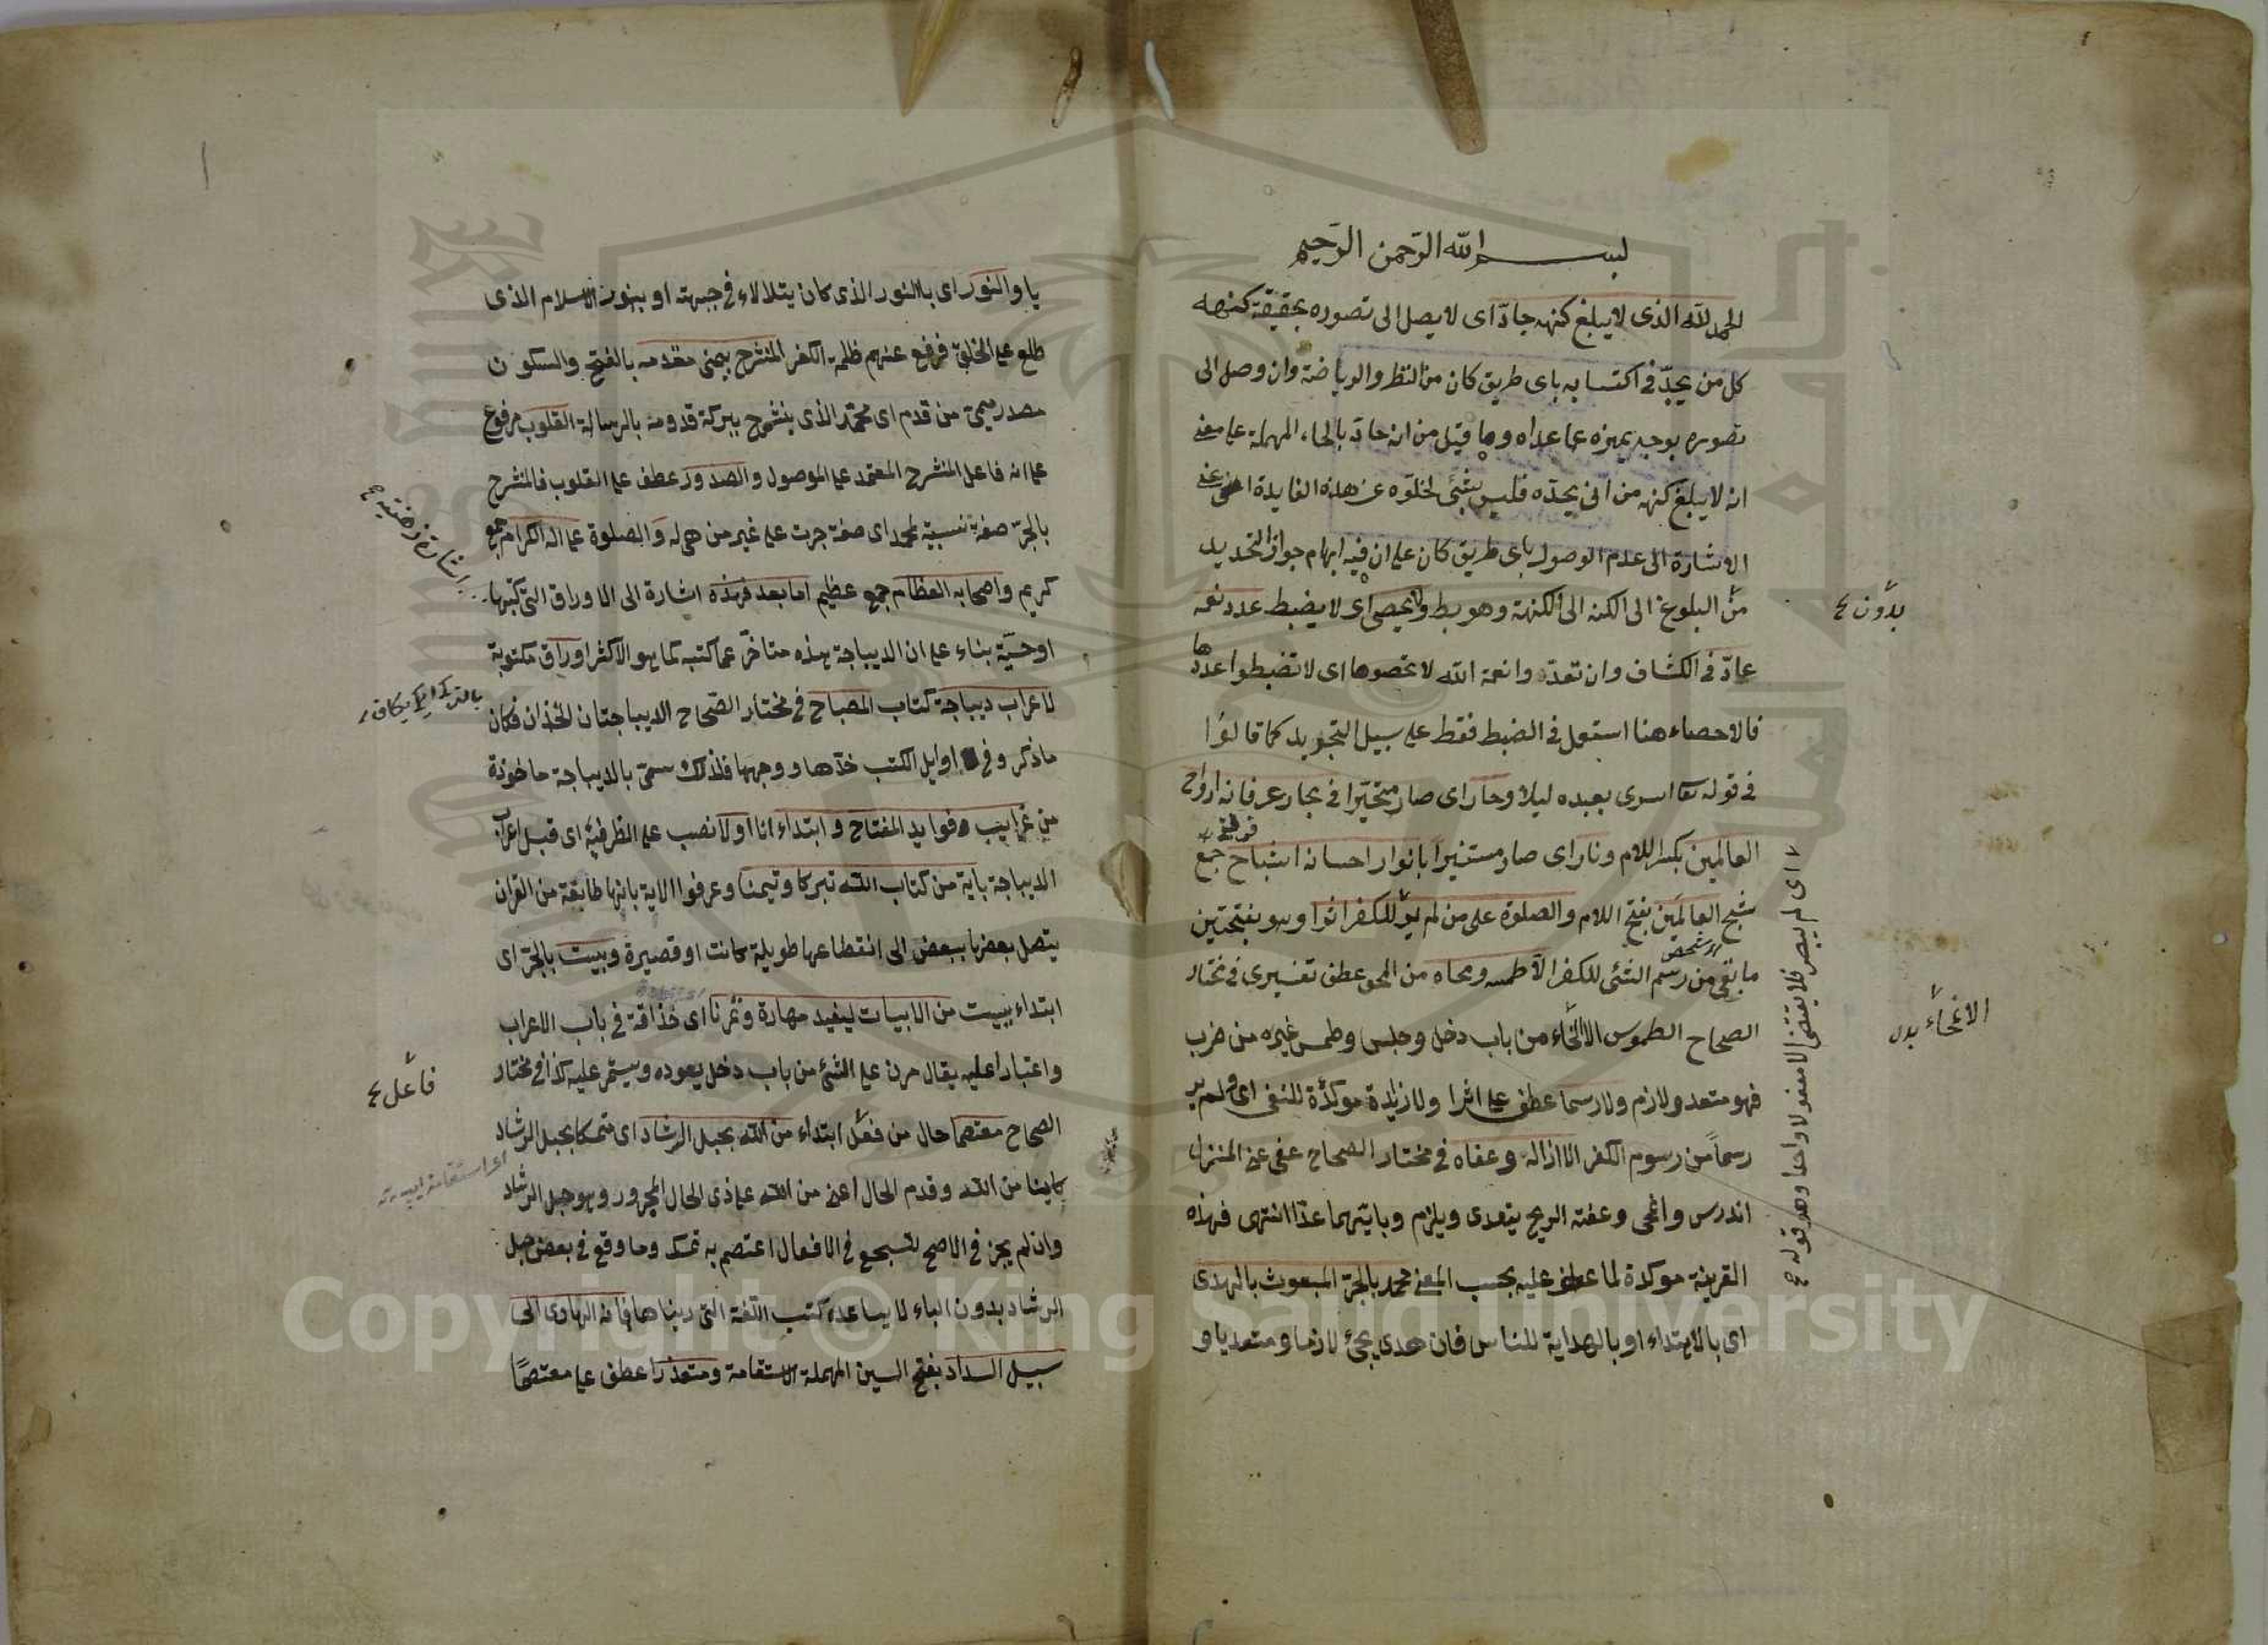 بسم الله الرحمن الرحيم
الحمد لله الذى لا يبلغ كنهه جادّ اى لا يصل الى تصوره بحقيقة كنهه
كل من يجدّ فى اكتسابه باى طريق كان من النظر والرياضة وان وصل الى
تصوره بوجه يميزه عما عداه وما قيل من انه حادّ بالحاء المهملة على معنى
انه لا يبلغ كنهه من يحدّه فليس بشئ لخلوّه عن هذه الفايدة اعنى
الاشارة الى عدم الوصول باى طريق كان على ان فيه ابهام جواز التحديد
من البلوغ الى الكنه الى الكنهة وهو ولا يحصى اى لا يضبط عدد نعمه
عادّ فى الكشاف وان تعدّوا نعمة الله لا تحصوها اى لا تضبطوا عددها
فالاحصاء هنا استعمل فى الضبط فقط على سبيل التجريد كما قالوا
فى قوله تعا اسرى بعبده ليلا وحار اى صار متحيّرا فى بحار عرفانه ارواح
العالمين بكسر اللام ونار اى صار مستنيرا بانوار احسانه اشباح جمع
شبح العالمين بفتح اللام والصلوة على من لم ير للكفر اثرا وهو بفتحتين
ما بقى من رسم الشئ للكفر الا طمسه ومحاه من المحو عطف تفسيرى فى مختار
الصحاح الطموس الانمحاء من باب دخل وجلس وطمس غيره من ضرب
فهو متعد ولازم ولا رسما عطف على اثرا ولا زايدة موكدة للنفى اى ولم ير
رسماً من رسوم الكفر الا ازاله وعفاه فى مختار الصحاح عفى عن المنزل
اندرس وانمحى وعفته الريح يتعدى ويلزم وبابهما عدا انتهى فهذه
القرينة موكدة لما عطف عليه بحسب المعنى محمد بالجرّ المبعوث بالهدى
اى بالاهتداء او بالهداية للناس فان هدى يجئ لازما ومتعديا و
بدون
الانمحاء بدل
اى لم يبصر فلا يقتضى الا مفعولا واحدا وهو قوله
يا والنور اى بالنور الذى كان يتلالاء فى جبهته او بنور الاسلام الذى
طلع على الخلق فرفع عنهم ظلمة الكفر المنشرح بيمنى مقدمه بالفتح والسكون
مصدر ميمى من قدم اى محمّد الذى ينشرح ببركة قدومه بالرسالة القلوب مرفوع
على انه فاعل المنشرح المعتمد على الموصول والصدور عطف على القلوب فالمنشرح
بالجرّ صفة نسبية لمحمد اى صفة جرت على غير من هى له والصلوة على اله الكرام جمع
كريم واصحابه العظام جمع عظيم اما بعد فهذه اشارة الى الاوراق التى كتبها
او حسّيّة بناء على ان الديباجة هذه متاخر عما كتبه كما هو الاكثر اوراق مكتوبة
لاعراب ديباجة كتاب المصباح فى مختار الصّحاح الديباجتان الخدّان فكان
ما ذكر فى اوايل الكتب خدّها ووجهها فلذلك سمى بالديباجة ماخوذة
من غرايب وفوايد المفتاح وابتداء انا اولا نصب على الظرفية اى قبل اعراب
الديباجة باية من كتاب الله تبركا وتيمنا وعرفوا الاية بانها طايفة من القران
يتصل بعضها ببعض الى انقطاعها طويلة كانت او قصيرة وبيت بالجرّ اى
ابتداء ببيت من الابيات ليفيد مهارة وتمرنا اى حذاقة فى باب الاعراب
واعتبارا عليه يقال مرن على الشئ من باب دخل يعوده ويستمر عليه كذا فى مختار
الصحاح معتصما حال من فعل ابتداء من الله بحبل الرشاد اى متمسكا بحبل الرشاد
كاينا من الله وقدم الحال اعنى من الله على ذى الحال المجرور وهو حبل الرشاد
وان لم يجز فى الاصح للسجع فى الافعال اعتصم به تمسك وما وقع فى بعض حبل
الرشاد بدون الباء لا يساعده كتب اللّغة التى رينا ها فانه الهادى الى
سبيل السداد بفتح السين المهملة الاستقامة ومتعذرا عطف على معتصمًا
فاعل